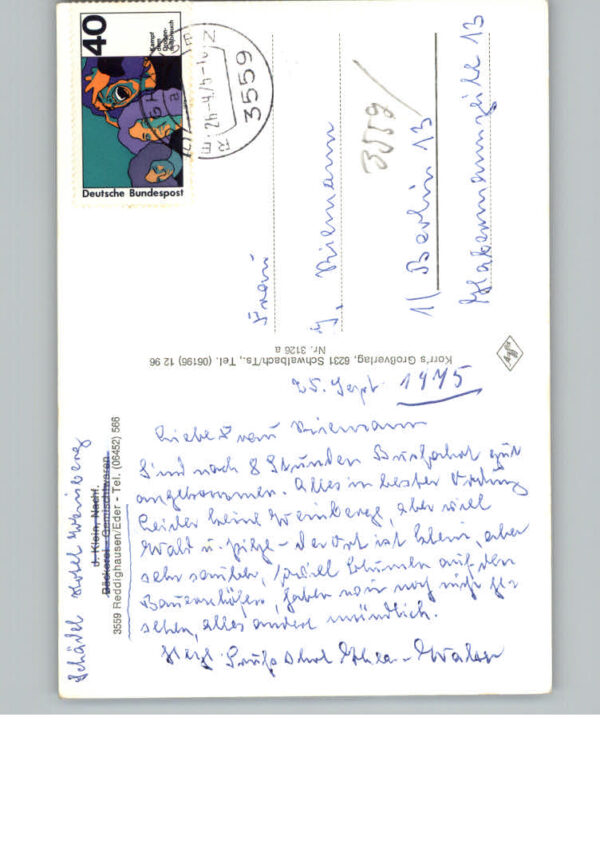 Deutsche Bundespost
40
Kampf
dem
Drogen-
mißbrauch
3559
3559/
Frau
J. Niemann
1/ Berlin 13
Habermannzeile 13
Korr's Großverlag, 6231 Schwalbach/Ts., Tel. (06196) 12 96
Nr. 3126 a
Agfa
Schädel Hotel Weinberg
J. Klein, Nachf.
Bäckerei - Gemischtwaren
3559 Reddighausen/Eder - Tel. (06452) 566
25. Sept. 1975
Liebe Frau Niemann
Sind nach 8 Stunden Busfahrt gut
angekommen. Alles in bester Ordnung
Leider keine Weinberge, aber viel
Wald u. Pilze - der Ort ist klein, aber
sehr sauber, soviel Blumen auf den
Bauernhöfen, haben wir noch nicht ge-
sehen, alles andere mündlich.
Herzl. Grüße